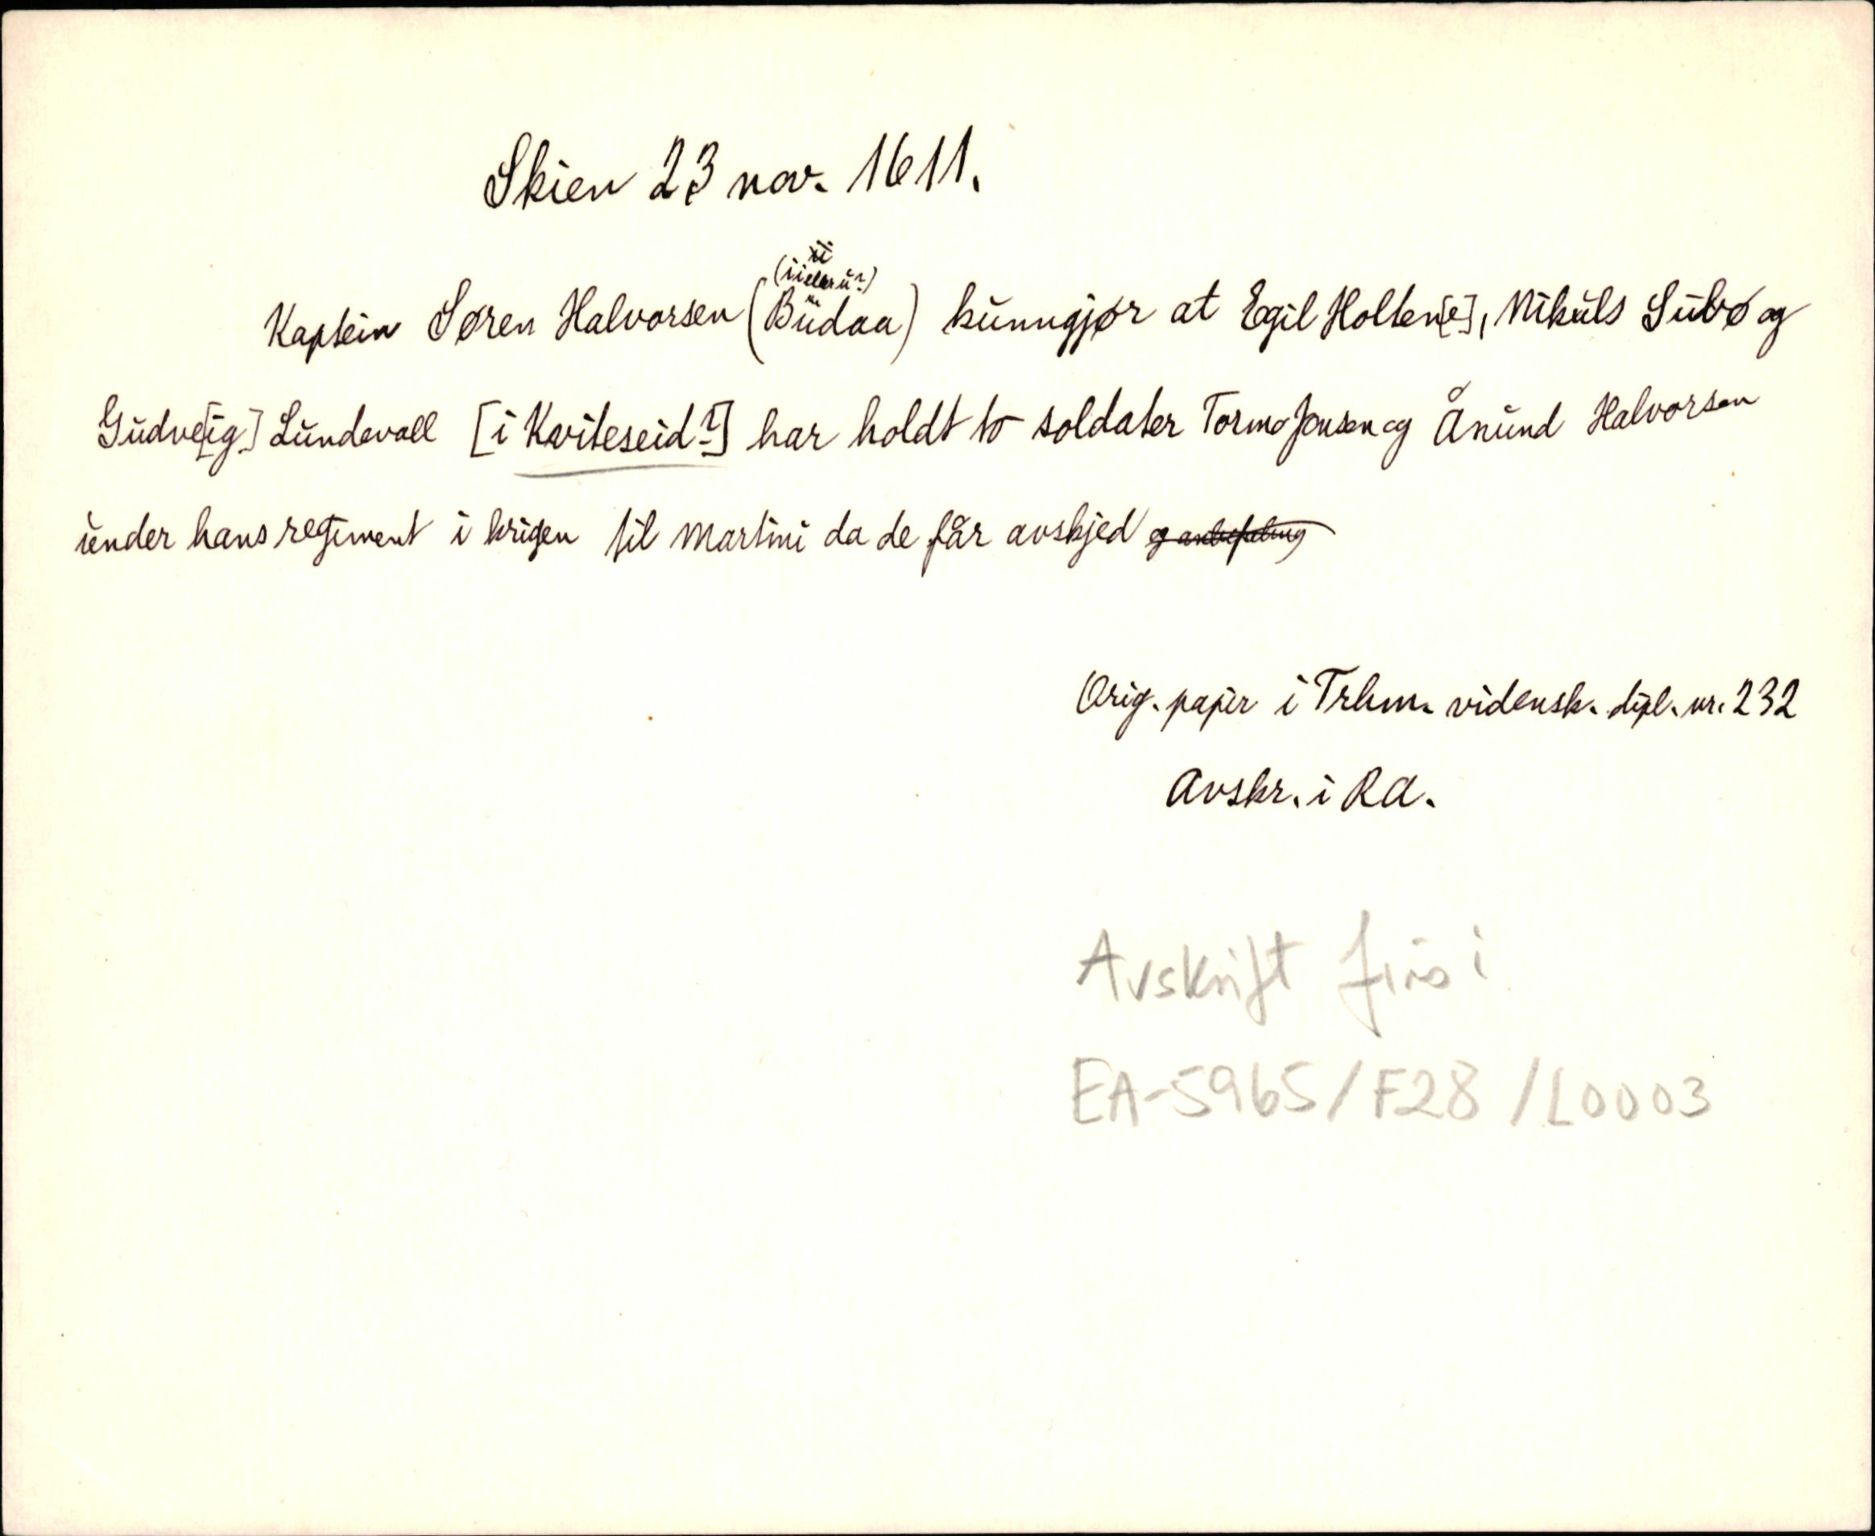 Skien 23 nov. 1611.
(ii eller ü?)
Kaptein Søren Halvorsen (Büdaa) kunngjør at Egil Holten[e], Nikuls Subø og
Gudve[ig] Lundevall [i Kviteseid?] har holdt to soldater Tormo Jonsen og Ånund Halvorsen
under hans regiment i krigen til Martini da de får avskjed og anbefaling
Orig. papir i Trhm. vidensk. dipl. nr. 232
Avskr. i RA.
Avskrift fins i
EA-5965/F28/L0003